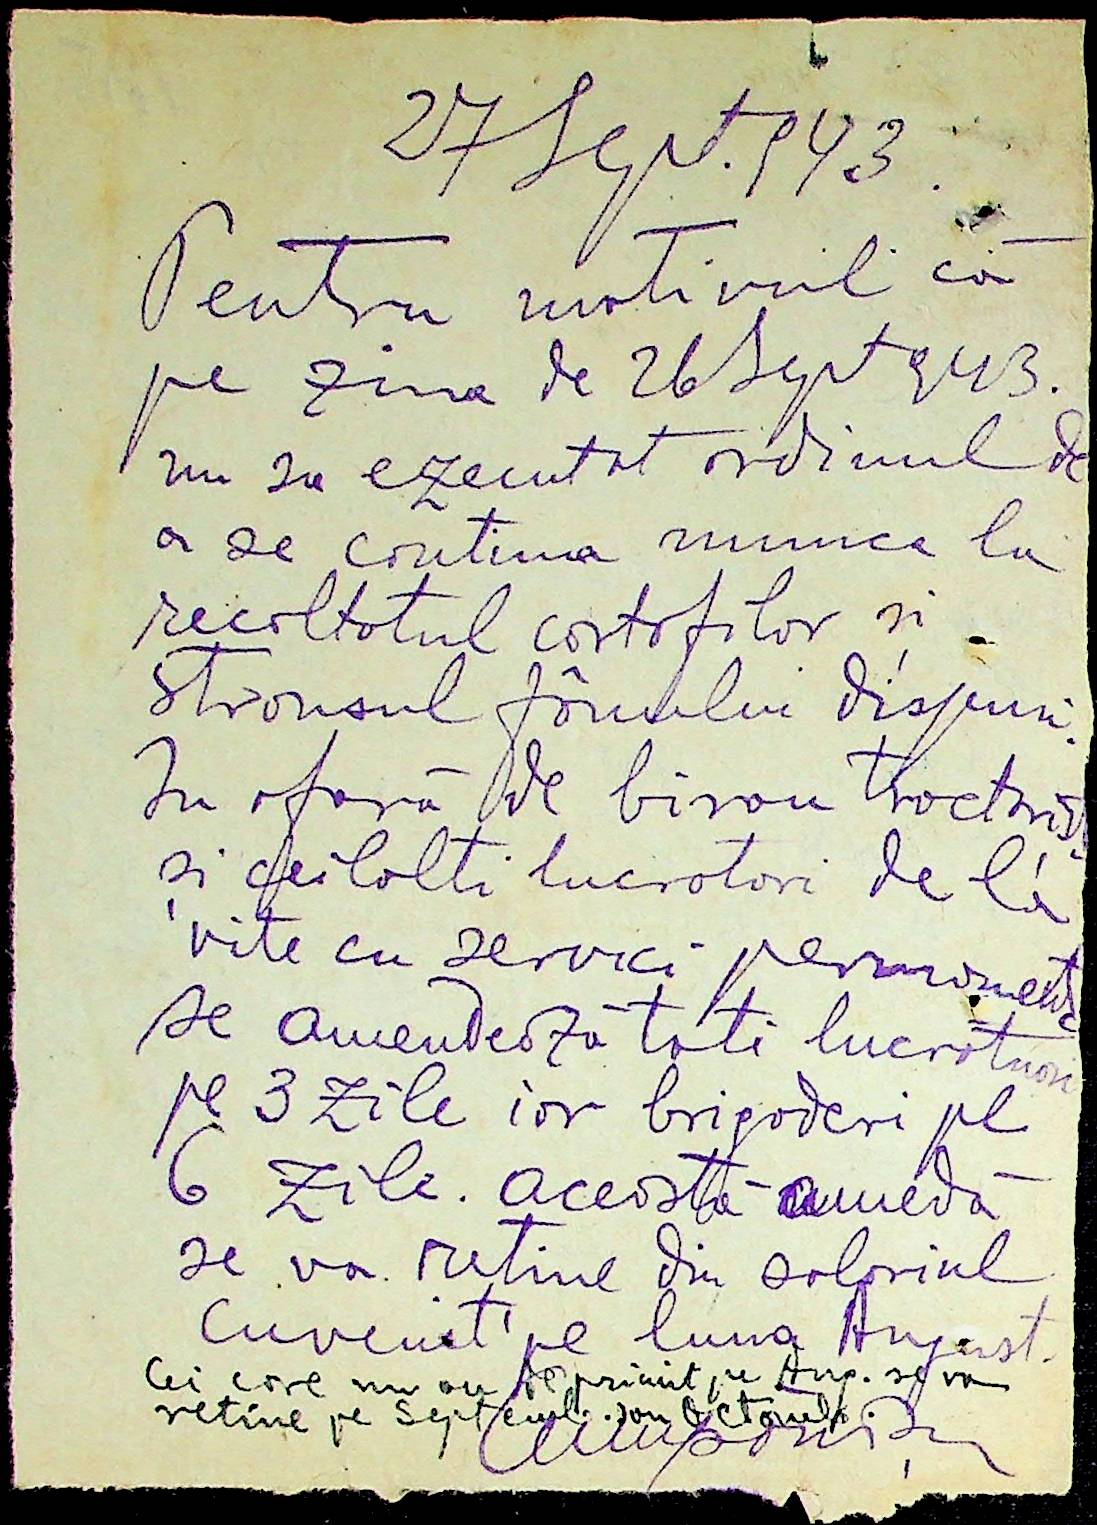 27 Sept. 943.
Pentru motivul că
pe zina de 26 Sept 943.
nu sa ezecutat ordinul de
a se continua munca la
recoltatul cartofilor și
stransul fânului dispun.
In afară de birou tractoriști
și ceilalti lucratori de la
vite cu servici permamente
se amendează toti lucrătuori
pe 3 zile iar brigaderi pe
6 zile. Aceastā amedā
se va retine din salariul
cuvenit pe luna August.
Cei care nu au de primit pe Aug. se va
retine pe Septemb. sau Octombr.